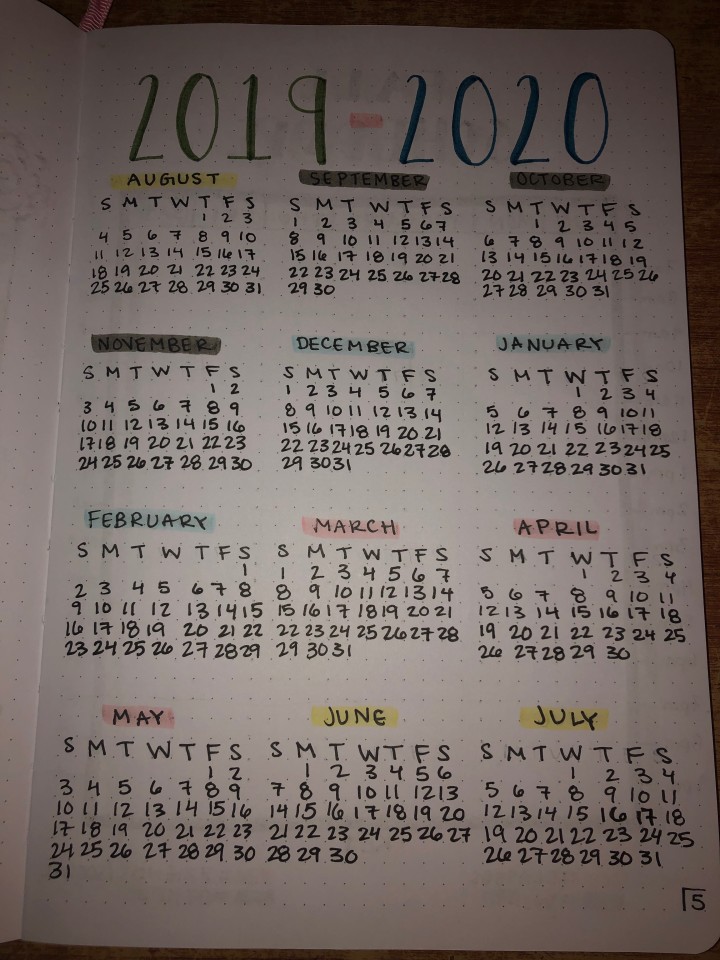 2019-2020
AUGUST SEPTEMBER OCTOBER
S M T W T F S S M T W T F S S M T W T F S
1 2 3 1 2 3 4 5 6 7 1 2 3 4 5
4 5 6 7 8 9 10 8 9 10 11 12 13 14 6 7 8 9 10 11 12
11 12 13 14 15 16 17 15 16 17 18 19 20 21 13 14 15 16 17 18 19
18 19 20 21 22 23 24 22 23 24 25 26 27 28 20 21 22 23 24 25 26
25 26 27 28 29 30 31 29 30 27 28 29 30 31
NOVEMBER DECEMBER JANUARY
S M T W T F S S M T W T F S S M T W T F S
1 2 1 2 3 4 5 6 7 1 2 3 4
3 4 5 6 7 8 9 8 9 10 11 12 13 14 5 6 7 8 9 10 11
10 11 12 13 14 15 16 15 16 17 18 19 20 21 12 13 14 15 16 17 18
17 18 19 20 21 22 23 22 23 24 25 26 27 28 19 20 21 22 23 24 25
24 25 26 27 28 29 30 29 30 31 26 27 28 29 30 31
FEBRUARY MARCH APRIL
S M T W T F S S M T W T F S S M T W T F S
1 1 2 3 4 5 6 7 1 2 3 4
2 3 4 5 6 7 8 8 9 10 11 12 13 14 5 6 7 8 9 10 11
9 10 11 12 13 14 15 15 16 17 18 19 20 21 12 13 14 15 16 17 18
16 17 18 19 20 21 22 22 23 24 25 26 27 28 19 20 21 22 23 24 25
23 24 25 26 27 28 29 29 30 31 26 27 28 29 30
MAY JUNE JULY
S M T W T F S S M T W T F S S M T W T F S
1 2 1 2 3 4 5 6 1 2 3 4
3 4 5 6 7 8 9 7 8 9 10 11 12 13 5 6 7 8 9 10 11
10 11 12 13 14 15 16 14 15 16 17 18 19 20 12 13 14 15 16 17 18
17 18 19 20 21 22 23 21 22 23 24 25 26 27 19 20 21 22 23 24 25
24 25 26 27 28 29 30 28 29 30 26 27 28 29 30 31
31
5